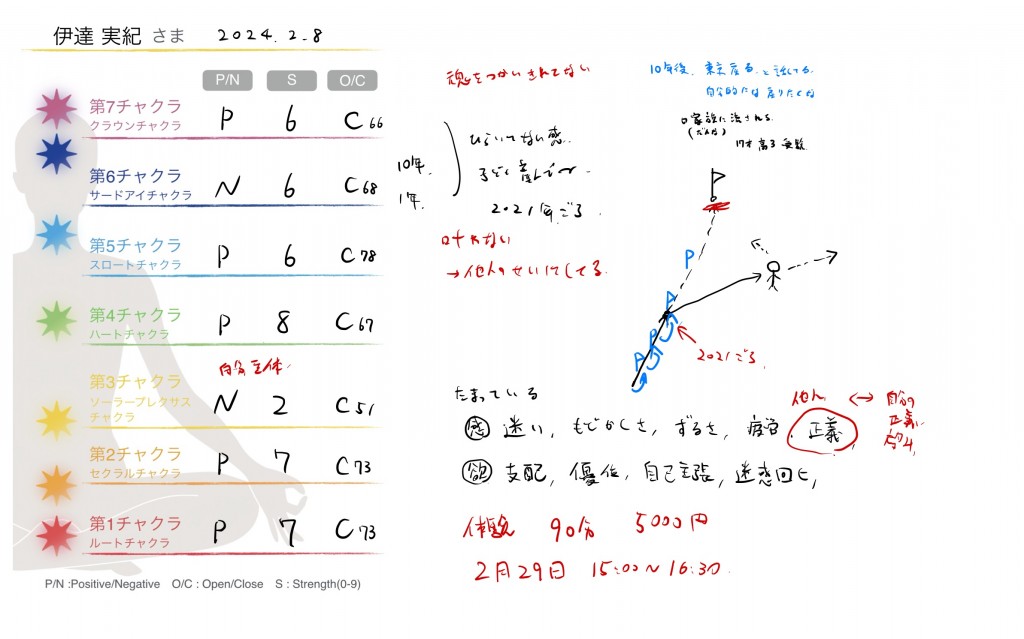 伊達 実紀 さま 2024.2.8
P/N S O/C
第7チャクラ
クラウンチャクラ
P 6 C66
第6チャクラ
サードアイチャクラ
N 6 C68
第5チャクラ
スロートチャクラ
P 6 C78
第4チャクラ
ハートチャクラ
P 8 C67
自分主体
第3チャクラ
ソーラープレクサス
チャクラ
N 2 C51
第2チャクラ
セクラルチャクラ
P 7 C73
第1チャクラ
ルートチャクラ
P 7 C73
P/N :Positive/Negative O/C : Open/Close S : Strength(0-9)
魂をつかいきれてない
10年
1年
ひらいてない感
2021年ごろ
叶れない
→他人のせいにしてる
10年後、東京戻る と話してる
自分的には戻りたくな
家族に流される
(だんな)
17才 高3 受験
P
P
P
P
2021ごろ
たまっている
感 迷い、もどかしさ、ずるさ、疲労、正義
他人 ↔ 自分の
正義
欲 支配、優位、自己主張、迷惑回ヒ、
体験 90分 5000円
2月29日 15:00〜16:30